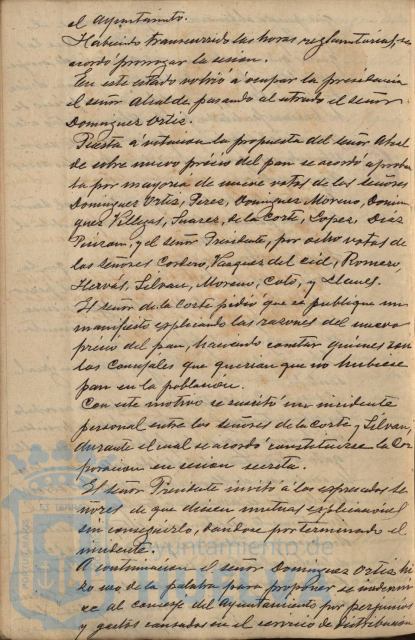 el Ayuntamiento.
Habiendo transcurrido las horas reglamentarias, se
acordó prorrogar la sesion.
En este estado volvió á ocupar la presidencia
el señor Alcalde pasando al estrado el señor
Dominguez Ortiz.
Puesta á votacion la propuesta del señor Alcal
de sobre nuevo précio del pan se acordó aprobar
la por mayoria de nueve votos de los señores
Dominguez Ortiz, Perez, Dominguez Moreno, Domin
guez Villegas, Suarez, de la Corte, Lopez, Diaz
y el señor Presidente, por ocho votos de
los señores Cordero, Vazquez del Cid, Romero,
Hervás, Silvan, Moreno, Coto, y Llanes.
El señor de la Corte pidió que se publique un
manifiesto esplicando las razones del nuevo
précio del pan, haciendo constar quienes son
los Concejales que querian que no hubiese
pan en la poblacion.
Con este motivo se suscitó un incidente
personal entre los señores de la Corte y Silvan,
durante el cual se acordó constituirse la Cor
poracion en sesion secreta.
El señor Presidente invitó á los expresados se
ñores de que diesen mutuas esplicaciones
sin conseguirlo, dandose por terminado el
incidente.
A continuacion el señor Dominguez Ortiz hi
zo uso de la palabra para proponer se indemni
ce al conserje del Ayuntamiento por perjuicios
y gastos causados en el servicio de distribucion
Ayuntamiento de